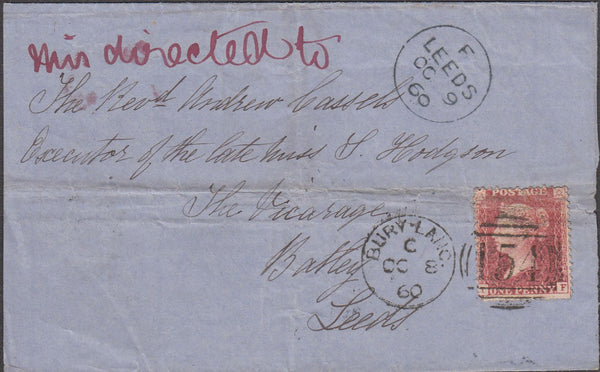 Mis directed to
F
LEEDS
OC 9
60
The Revd. Andrew Cassels
Executor of the late Miss S. Hodgson
The Vicarage
Batley
Leeds.
BURY-LANC.
C
OC 8
60
POSTAGE
ONE PENNY
F